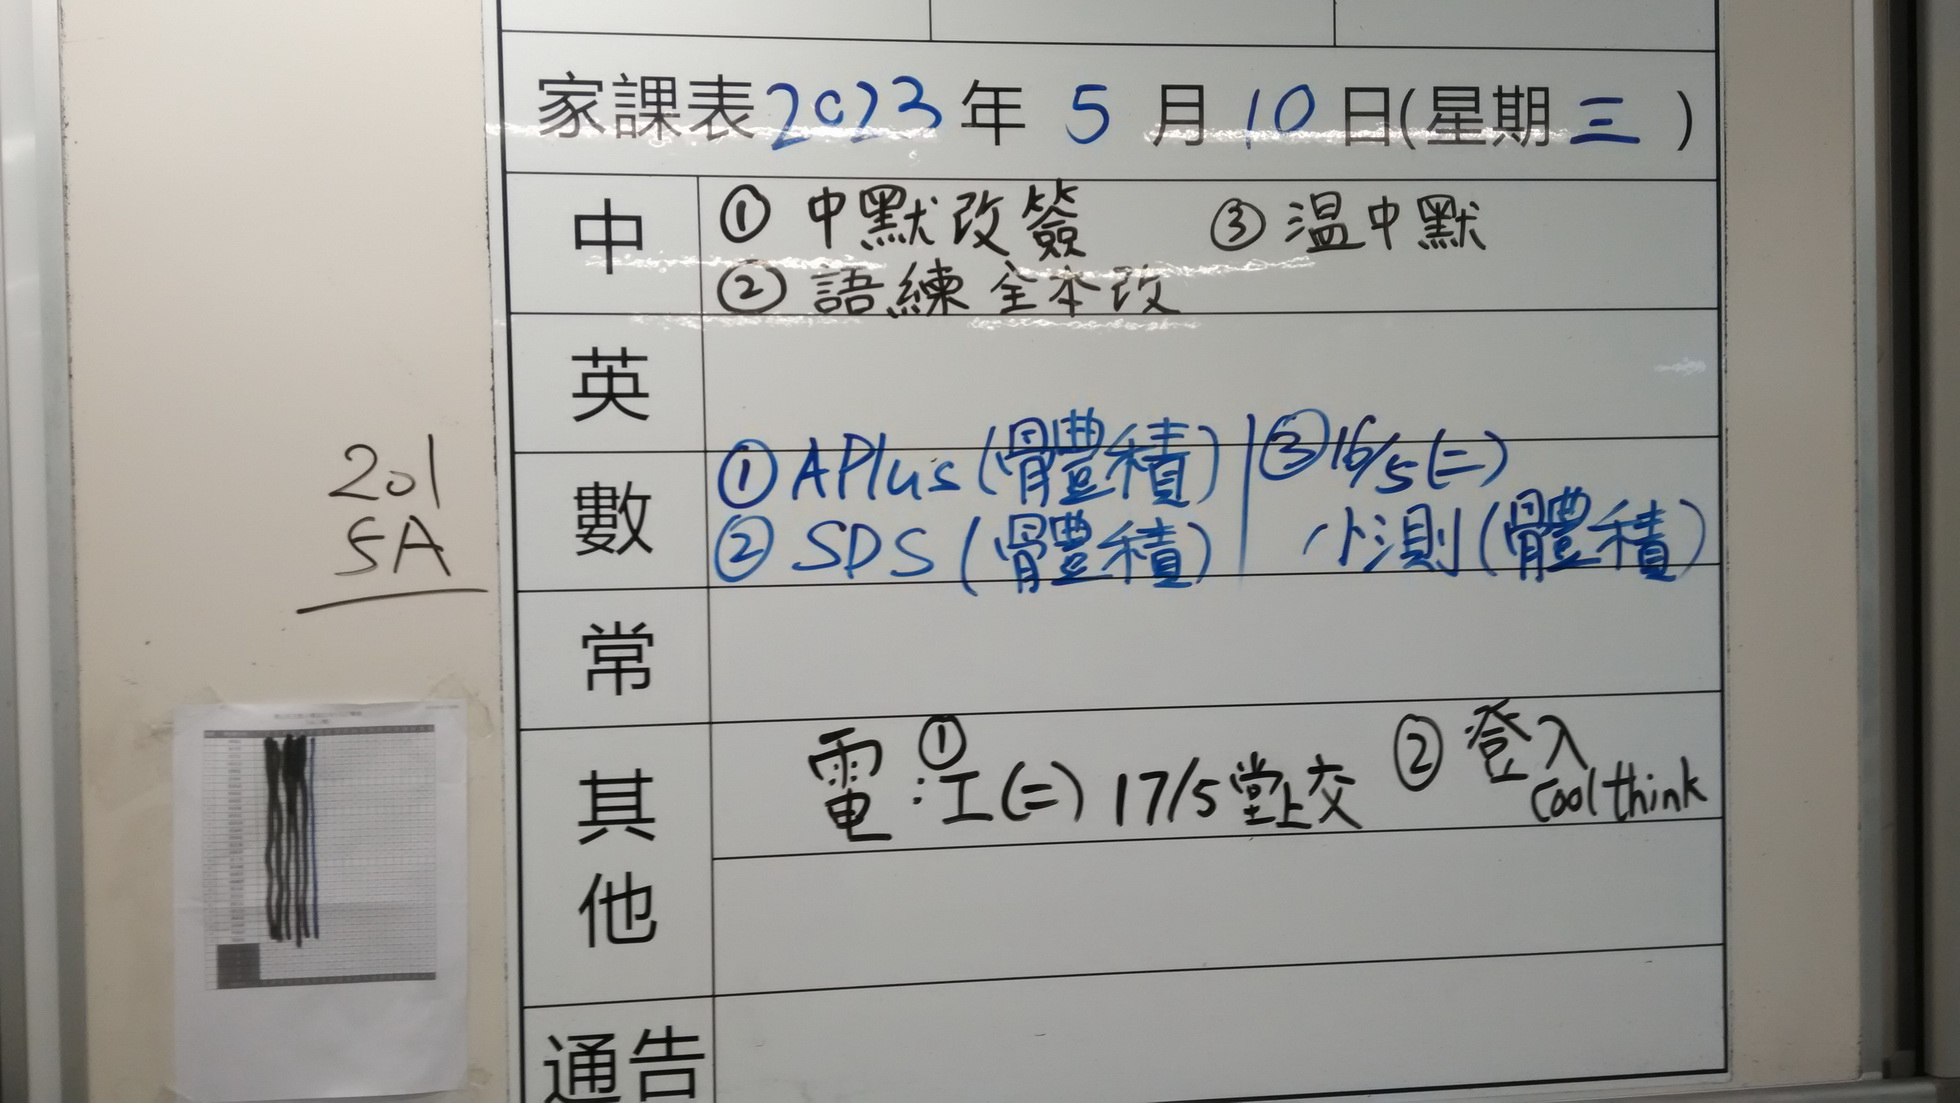 家課表2023年 5 月 10 日(星期 三 )
中 ① 中默改簽 ③ 溫中默
② 語練全本改
英
數 ① APlus (體積) ③ 16/5 (二)
② SDS (體積) 小測 (體積)
常
其他 電: ① 工(二) 17/5 堂上交 ② 登入
cool think
通告
201
5A